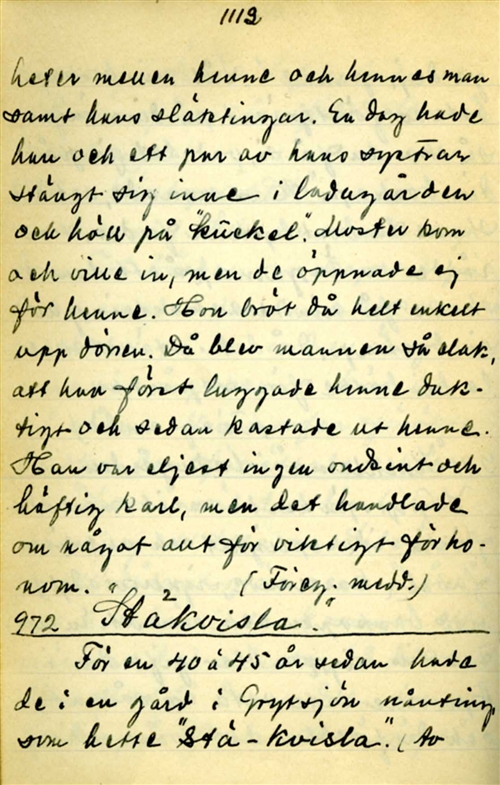 1113
heter mellen henne och hennes man
samt hans släktingar. En dag hade
han och ett par av hans systrar
stängt sig inne i ladugården
och höll på "kückel". Moster kom
och ville in, men de öppnade ej
för henne. Hon bröt då helt enkelt
upp dörren. Då blev mannen så elak,
att han först luggade henne duk-
tigt och sedan kastade ut henne.
Han var eljest ingen ondsint och
häftig karl, men det handlade
om något allt för viktigt för ho-
nom." (Föreg. medd.)
972 "Stå2kvisla."
För en 40 à 45 år sedan hade
de i en gård i Grytsjön nånting,
som hette "Stå-kvisla". (Av